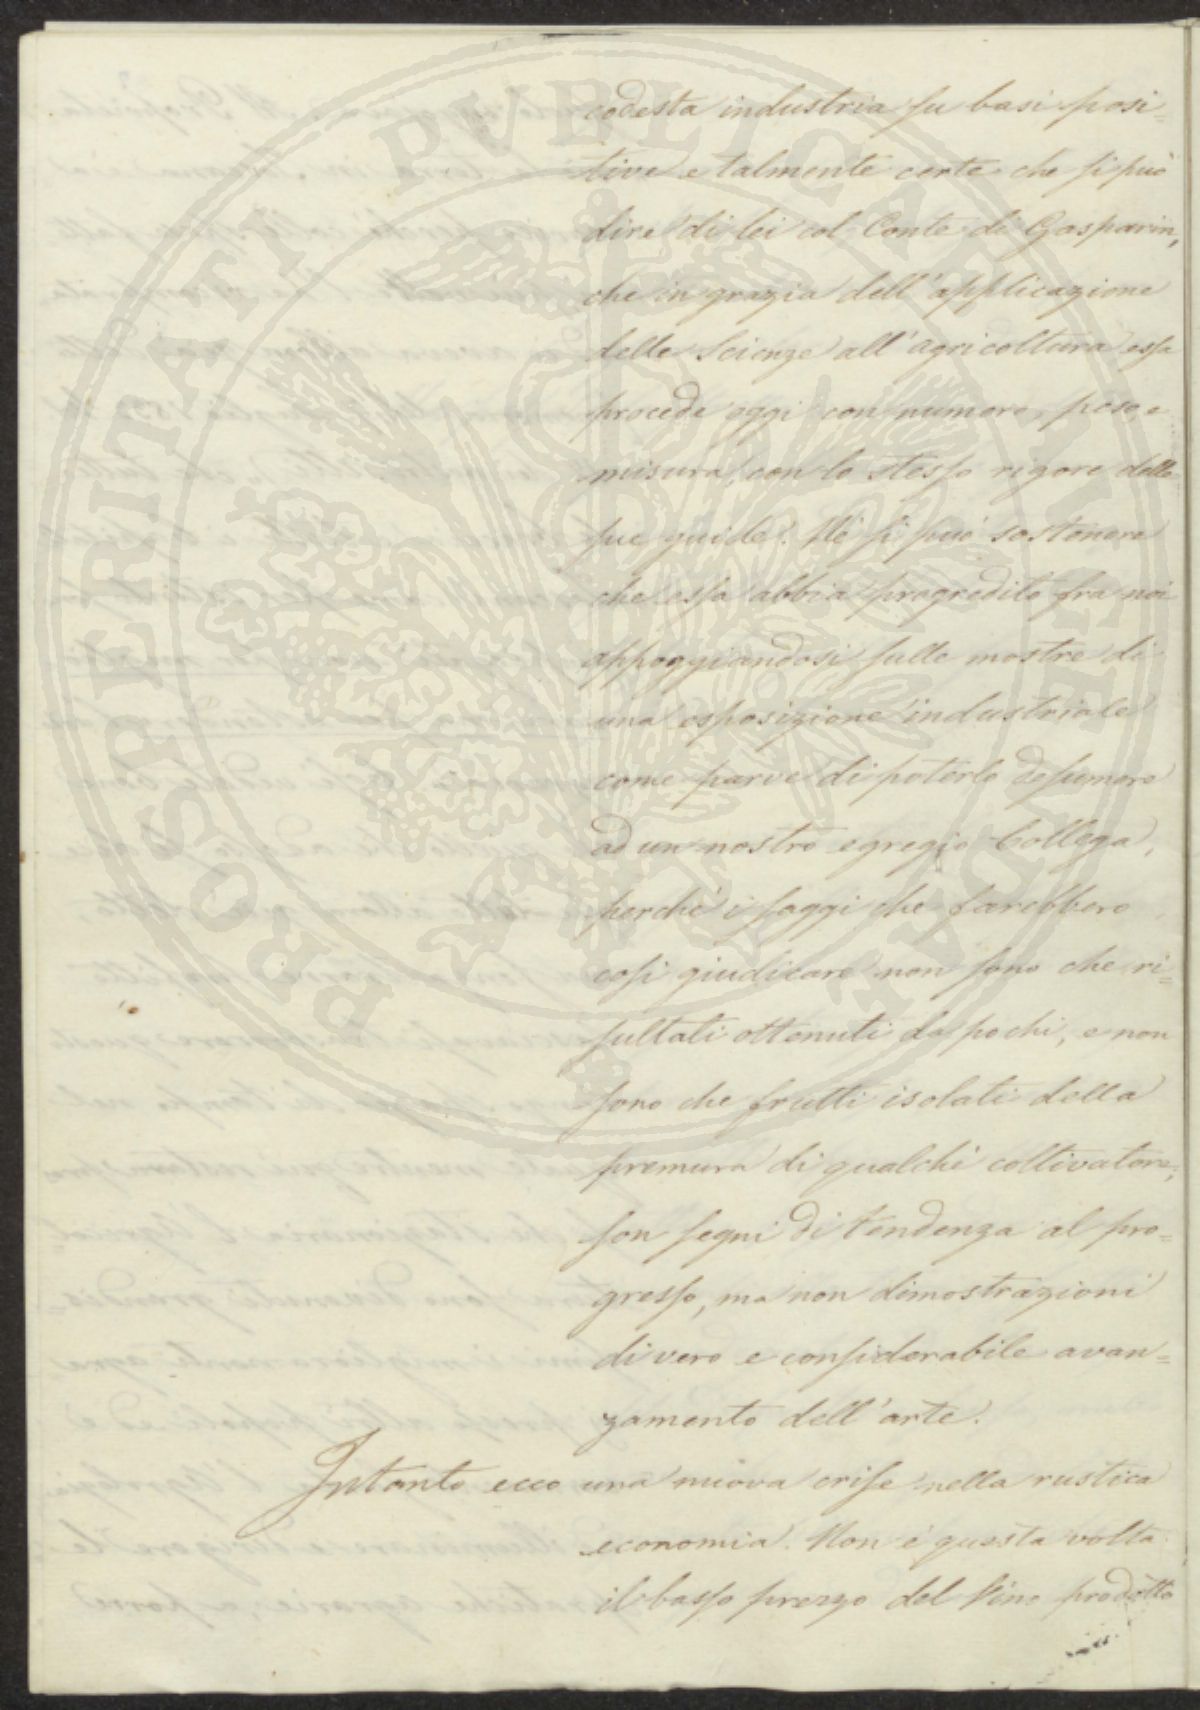 codesta industria su basi posi=
tive e talmente certe che si può
dire di lei col Conte di Gasparin,
che in grazia dell'applicazione
delle Scienze all'agricoltura essa
procede oggi con numero, peso, e
misura, con lo stesso rigore delle
sue guide. Nè si può sostenere
che essa abbia progredito fra noi
appoggiandosi sulle mostre di
una esposizione industriale
come parve di poterlo desumere
ad un nostro egregio Collega,
perchè i saggi che farebbero
così giudicare non sono che ri=
sultati ottenuti da pochi, e non
sono che frutti isolati della
premura di qualche coltivatore;
son segni di tendenza al pro=
gresso, ma non dimostrazioni
di vero e considerabile avan=
zamento dell'arte.
Intanto ecco una nuova crise nella rustica
economia. Non è questa volta
il basso prezzo del Vino prodotto
PROSPERITATI PVBLICAE